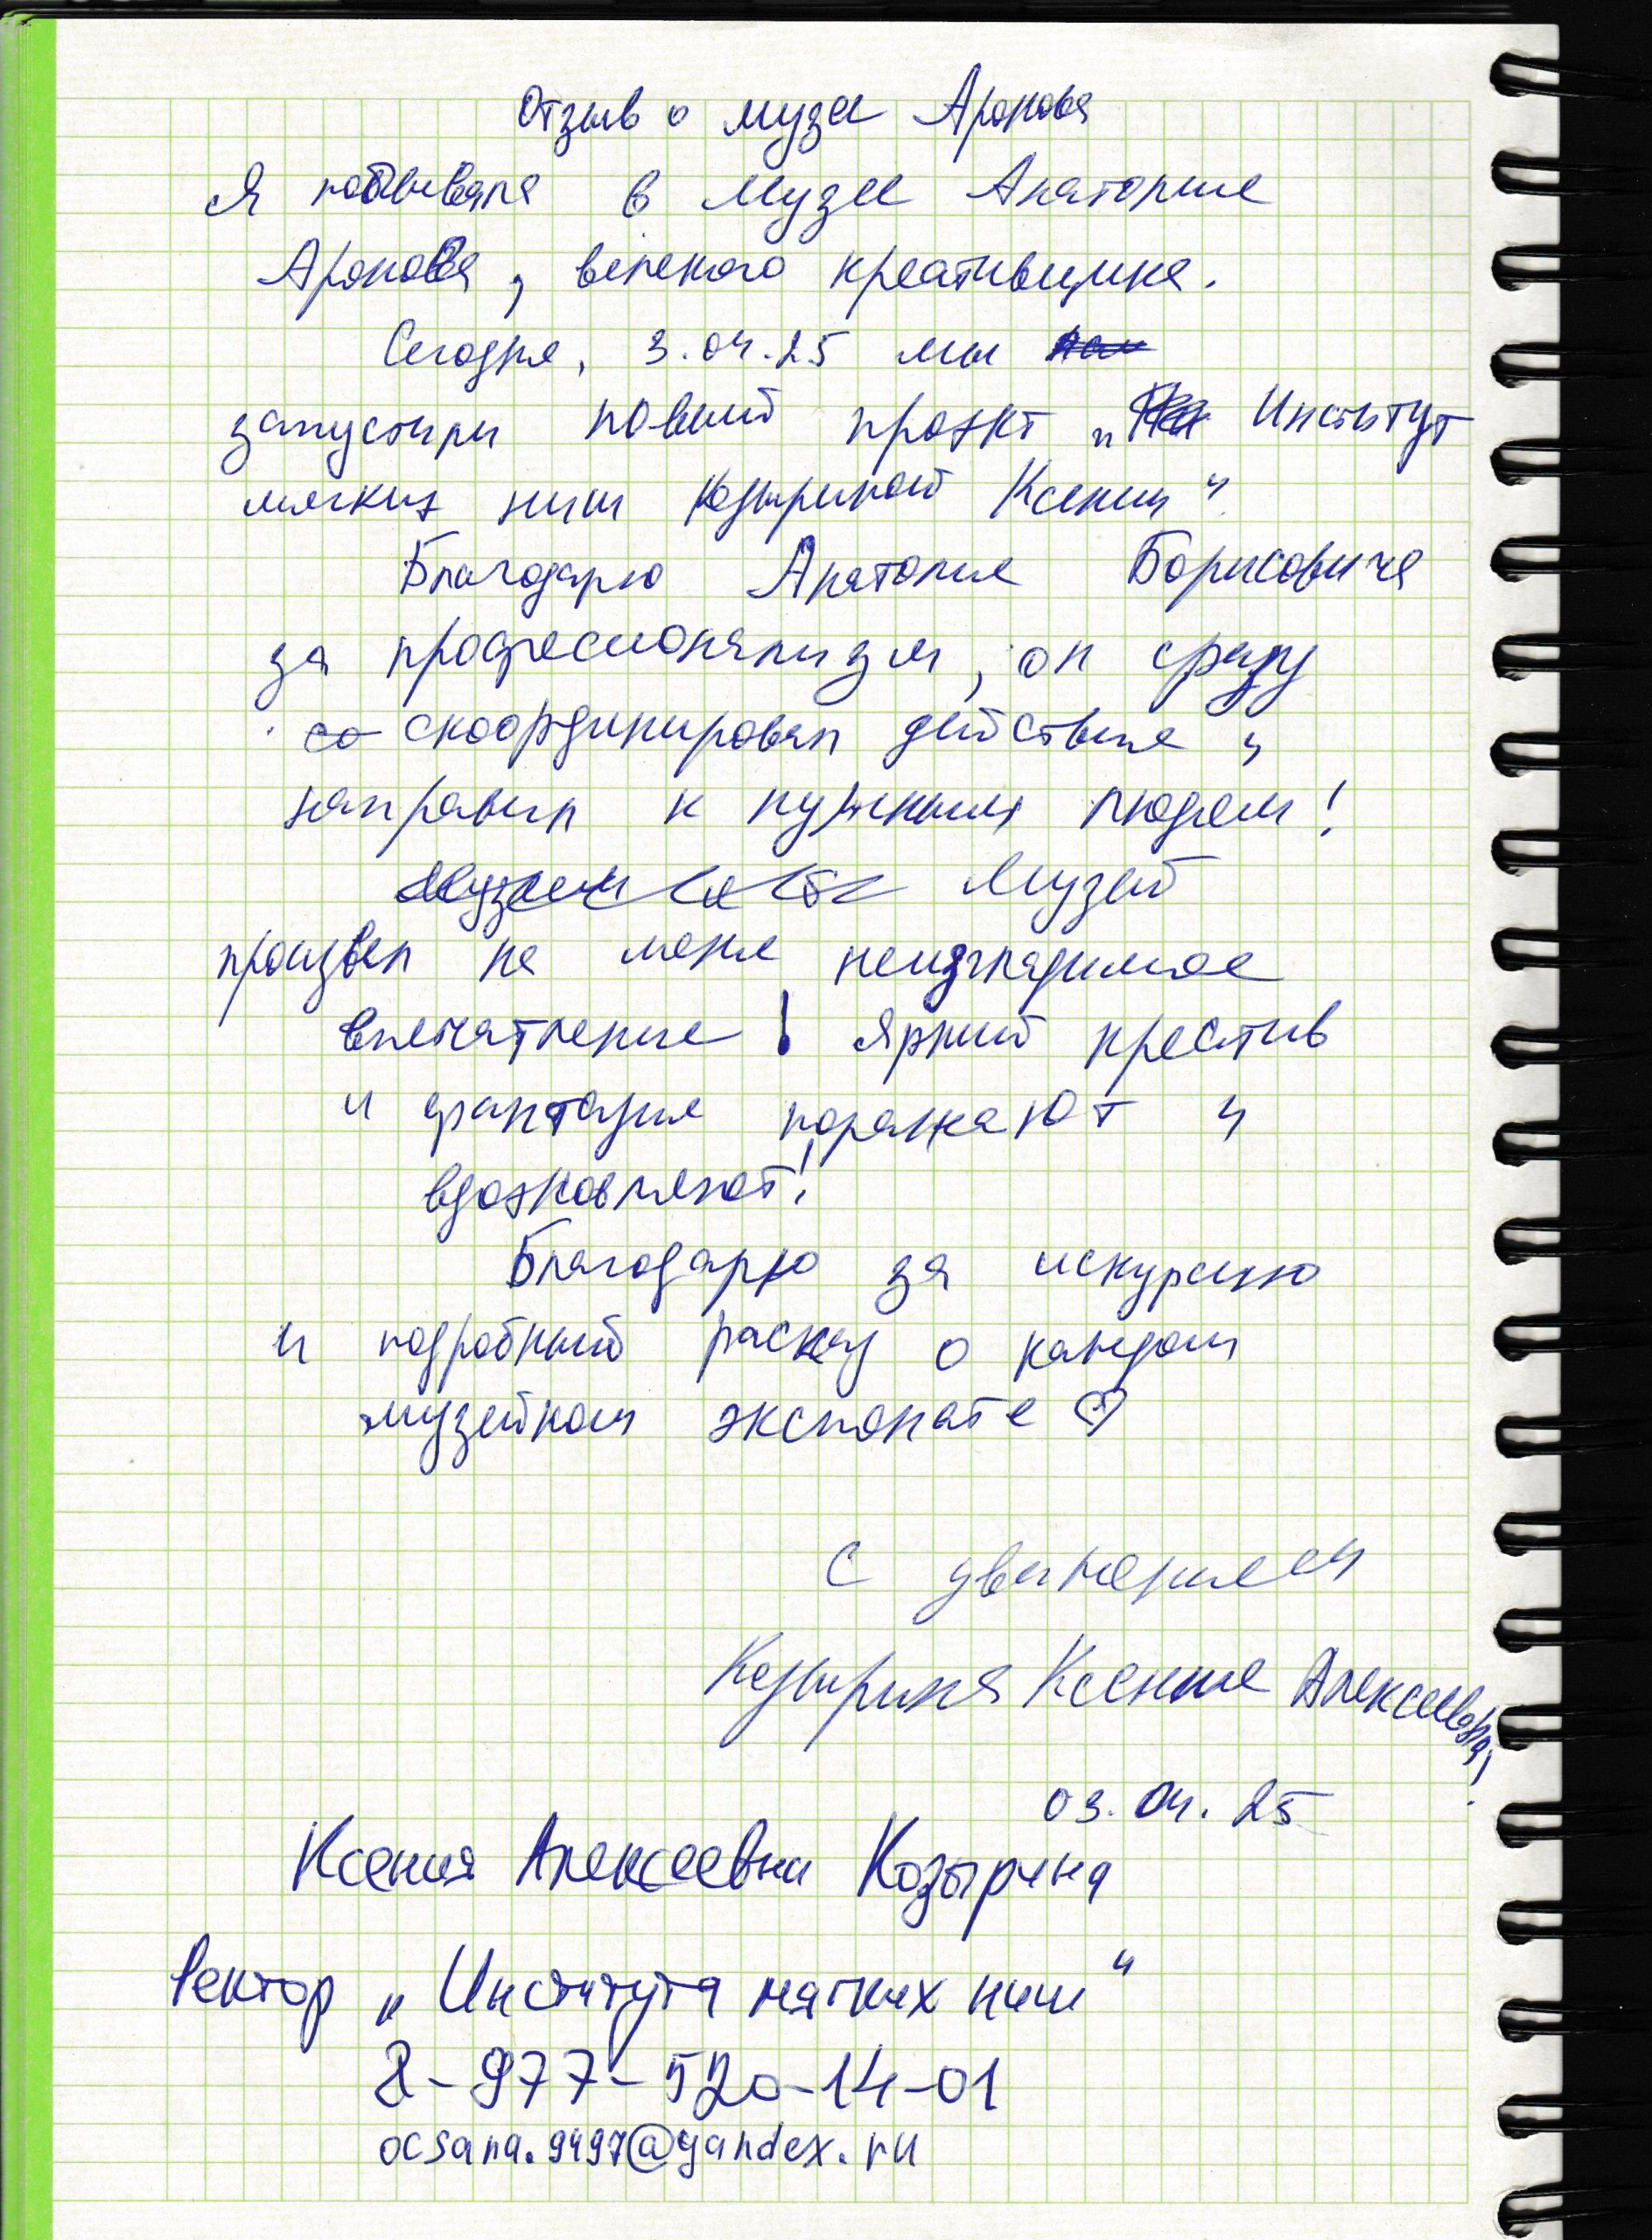 Отзыв о музее Аронова
Я побывала в музее Анатолия
Аронова, великого креативщика.
Сегодня, 3.04.25 мы
запустили новый проэкт „Институт
мягких ниш Козыриной Ксении“
Благодарю Анатолия Борисовича
за професионализм, он сразу
со скоординировал действия и
направил к нужным людям!
Музей
произвел на меня неизгладимое
впечатление! Яркий креатив
и фантазия поражают и
вдохновляют!
Благодарю за искурсию
и подробный расказ о каждом
музейном экспонате ♡
С уважением
Козырина Ксения Алексеевна!
03.04.25
Ксения Алексеевна Козырина
Ректор „Института мягких ниш“
8-977-520-14-01
ocsana.9497@yandex.ru